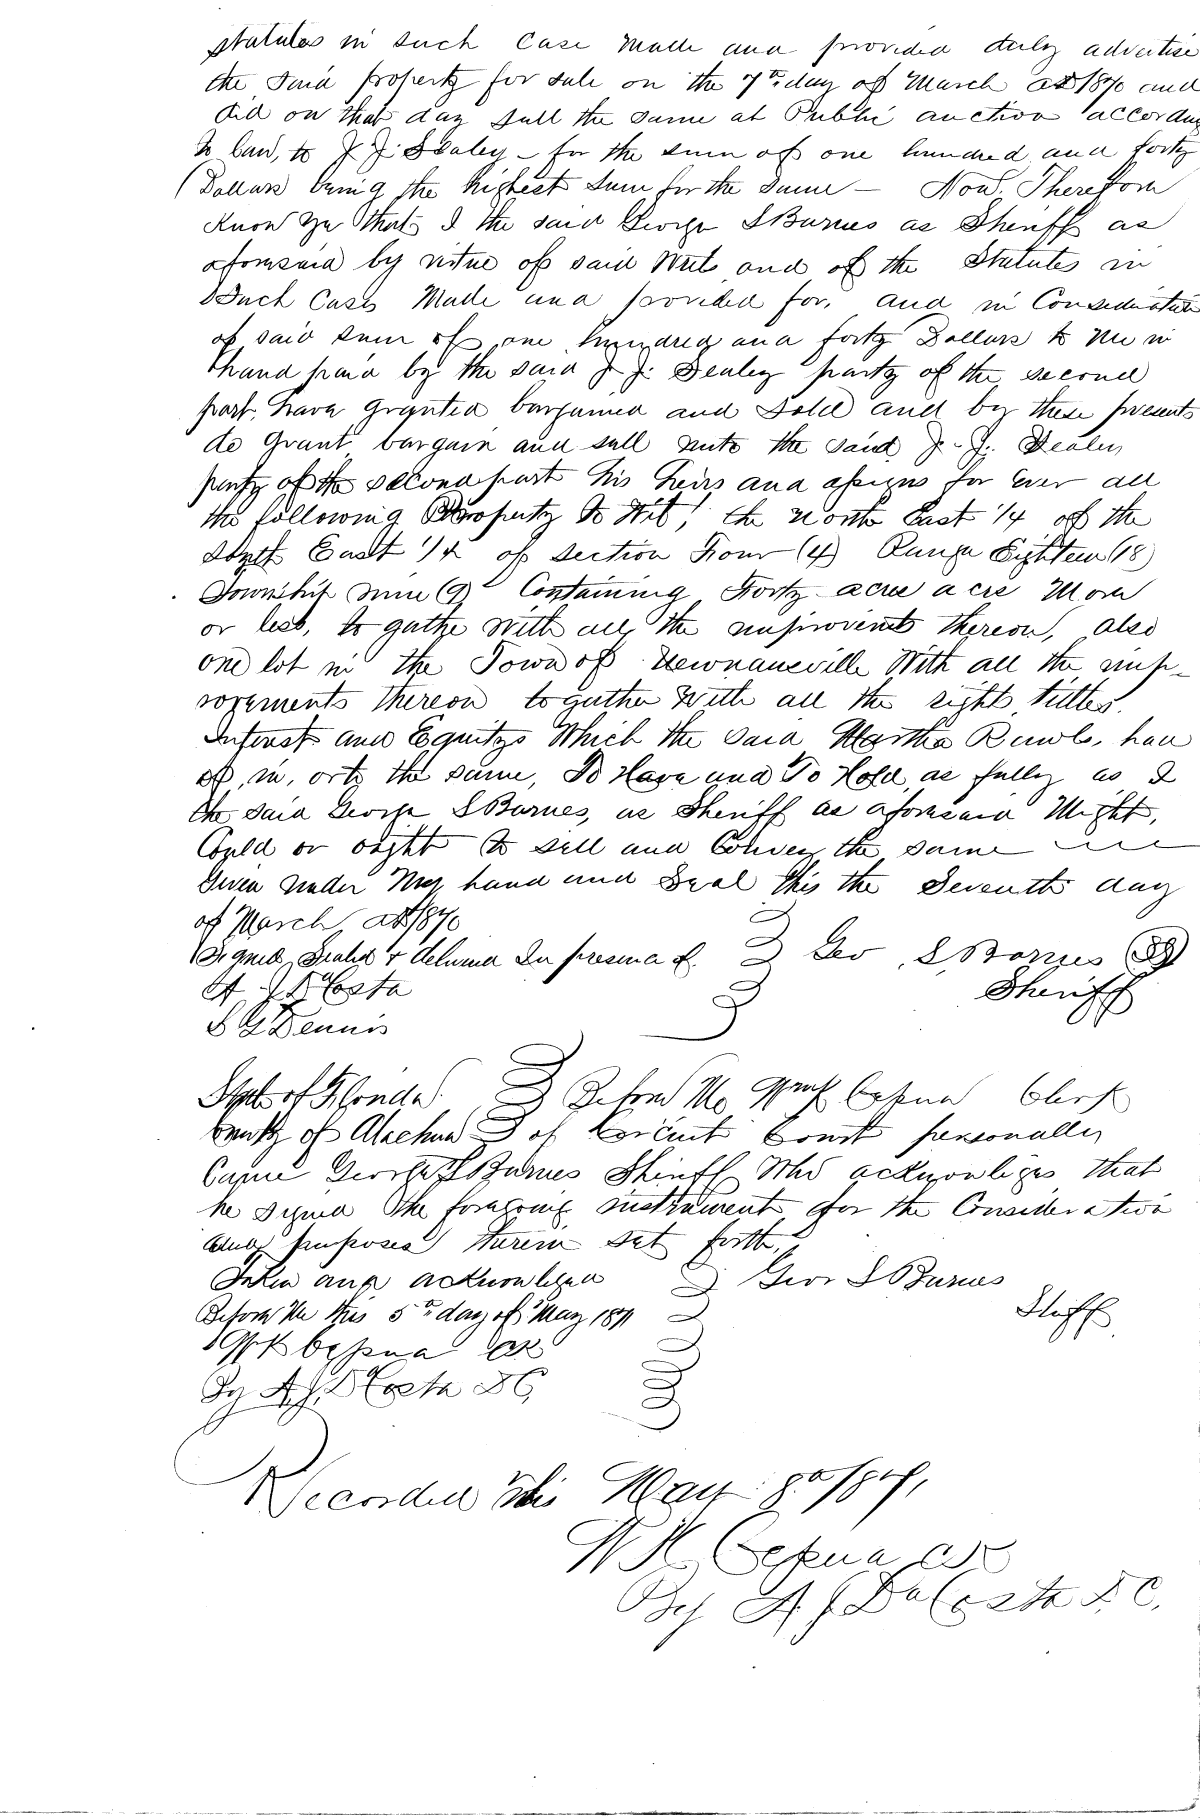 statutes in such Case Made and provided duly advertise
the said property for sale on the 7th day of March AD 1870 and
did on that day sell the same at Public auction according
to law, to J. J. Sealey - for the sum of one hundred and forty
Dollars being the highest sum for the same — Now, Therefore
Know ye that I the said George S Barnes as Sheriff as
aforesaid by virtue of said Writ and of the Statutes in
Such Cases Made and provided for, and in Consideration
of said sum of one hundred and forty Dollars to Me in
hand paid by the said J. J. Sealey party of the second
part, have granted bargained and sold and by these presents
do Grant, bargain and sell unto the said J. J. Sealey
party of the second part his heirs and assigns for Ever all
the following Property to Wit; the North East 1/4 of the
South East 1/4 of section Four (4) Range Eighteen (18)
Township nine (9) Containing Forty acres acre More
or less, to gathe with all the improvents thereon, also
one lot in the Town of Newnansville With all the imp-
rovements thereon togather With all the right, tittles.
Interest and Equitys Which the said Martha had
of, in, or to the same, To Have and To Hold, as fully as I
the said George S Barnes, as Sheriff as aforesaid Might,
Could or ought to sell and Convey the same
Given under My hand and Seal this the Seventh day
of March AD 1870
Signed, Sealed & delivered In presence of. Geo S Barnes SS
A J DaCosta Sheriff
S G Dennis
State of Florida Before Me Clerk
County of Alachua of Circuit Court personally
Came George S Barnes Sheriff Who acknowliges that
he signed the foregoing instrument for the Consideration
and purposes therein set forth,
Taken and acknowliged Geor S Barnes
Before Me this 5th day of May 1871 Shff
W K Cessna Clk
By A. J. DaCosta DC,
Recorded this May 8th /871,
W K Cessna Clk
By A J DaCosta D.C.